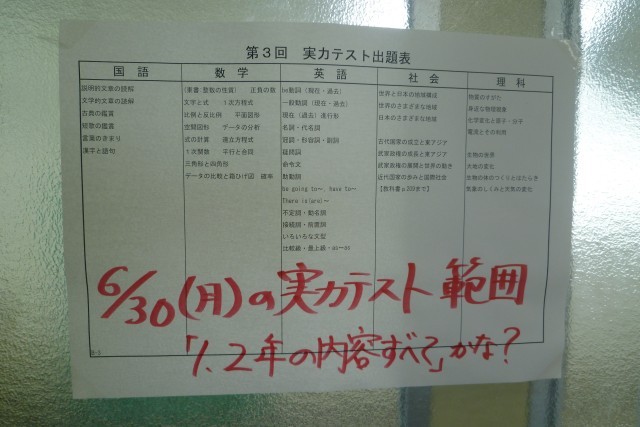 第3回 実力テスト出題表
国語
説明的文章の読解
文学的文章の読解
古典の鑑賞
短歌の鑑賞
言葉のきまり
漢字と語句
数学
(素数・整数の性質) 正負の数
文字と式 1次方程式
比例と反比例 平面図形
空間図形 データの分析
式の計算 連立方程式
1次関数 平行と合同
三角形と四角形
データの比較と箱ひげ図 確率
英語
be動詞(現在・過去)
一般動詞(現在・過去)
現在(過去)進行形
名詞・代名詞
冠詞・形容詞・副詞
疑問詞
命令文
助動詞
be going to～, have to～
There is(are)～
不定詞・動名詞
接続詞・前置詞
いろいろな文型
比較級・最上級・as～as
社会
世界と日本の地域構成
世界のさまざまな地域
日本のさまざまな地域
古代国家の成立と東アジア
武家政権の成長と東アジア
武家政権の展開と世界の動き
近代国家の歩みと国際社会
【教科書p203まで】
理科
物質のすがた
身近な物理現象
化学変化と原子・分子
電流とその利用
生物の世界
大地の変化
生物の体のつくりとはたらき
気象のしくみと天気の変化
6/30(月)の実力テスト範囲
「1.2年の内容すべて」かな?